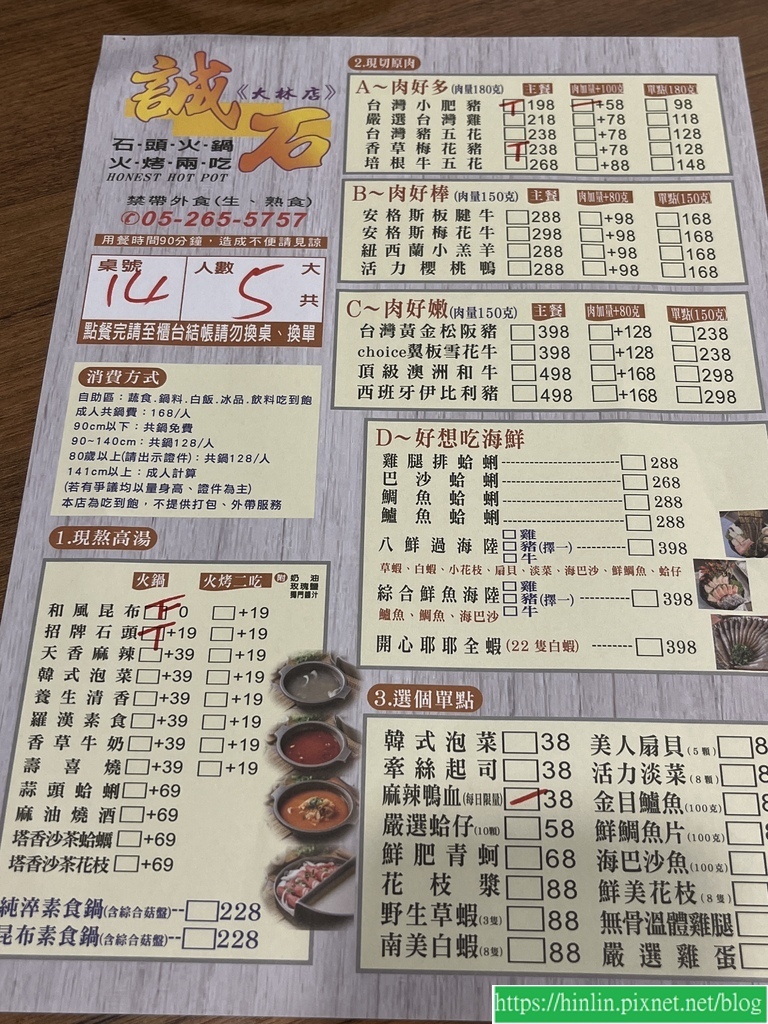 誠石《大林店》
石·頭·火·鍋
火·烤·兩·吃
HONEST HOT POT
禁帶外食(生、熟食)
✆05-265-5757
用餐時間90分鐘，造成不便請見諒
桌號 14 人數 5 大 共
點餐完請至櫃台結帳請勿換桌、換單
消費方式
自助區：蔬食.鍋料.白飯.冰品.飲料吃到飽
成人共鍋費：168/人
90cm以下：共鍋免費
90~140cm：共鍋128/人
80歲以上(請出示證件)：共鍋128/人
141cm以上：成人計算
(若有爭議均以量身高、證件為主)
本店為吃到飽，不提供打包、外帶服務
1.現熬高湯
火鍋 火烤二吃 附 奶油 玫瑰鹽 獨門醬汁
和風昆布 □+0 □+19
招牌石頭 □+19 □+19
天香麻辣 □+39 □+19
韓式泡菜 □+39 □+19
養生清香 □+39 □+19
羅漢素食 □+39 □+19
香草牛奶 □+39 □+19
壽喜燒 □+39 □+19
蒜頭蛤蜊 □+69
麻油燒酒 □+69
塔香沙茶蛤蠣 □+69
塔香沙茶花枝 □+69
純淬素食鍋(含綜合菇盤)--□228
昆布素食鍋(含綜合菇盤)--□228
2.現切原肉
A～肉好多(肉量180克) 主餐 肉加量+100克 單點(180克)
台灣小肥豬 □198 □+58 □98
嚴選台灣雞 □218 □+78 □118
台灣豬五花 □238 □+78 □128
香草梅花豬 □238 □+78 □138
培根牛五花 □268 □+88 □148
B～肉好棒(肉量150克) 主餐 肉加量+80克 單點(150克)
安格斯板腱牛 □288 □+98 □168
安格斯梅花牛 □298 □+98 □168
紐西蘭小羔羊 □288 □+98 □168
活力櫻桃鴨 □288 □+98 □168
C～肉好嫩(肉量150克) 主餐 肉加量+80克 單點(150克)
台灣黃金松阪豬 □398 □+128 □238
choice翼板雪花牛 □398 □+128 □238
頂級澳洲和牛 □498 □+168 □298
西班牙伊比利豬 □498 □+168 □298
D～好想吃海鮮
雞腿排蛤蜊----------□288
巴沙蛤蜊----------□268
鯛魚蛤蜊----------□288
鱸魚蛤蜊----------□288
八鮮過海陸 □雞 □豬(擇一) □牛 ----□398
草蝦、白蝦、小花枝、扇貝、淡菜、海巴沙、鮮鯛魚、蛤仔
綜合鮮魚海陸 □雞 □豬(擇一) □牛 ----□398
鱸魚、鯛魚、海巴沙
開心耶耶全蝦(22 隻白蝦) --------□398
3.選個單點
韓式泡菜 □38 美人扇貝(5顆) □8
牽絲起司 □38 活力淡菜(8顆) □8
麻辣鴨血(每日限量) □38 金目鱸魚(100克) □8
嚴選蛤仔(10顆) □58 鮮鯛魚片(100克) □8
鮮肥青蚵 □68 海巴沙魚(100克) □
花枝漿 □88 鮮美花枝(8隻) □
野生草蝦(3隻) □88 無骨溫體雞腿 □
南美白蝦(8隻) □88 嚴選雞蛋 □
https://hinlin.pixnet.net/blog